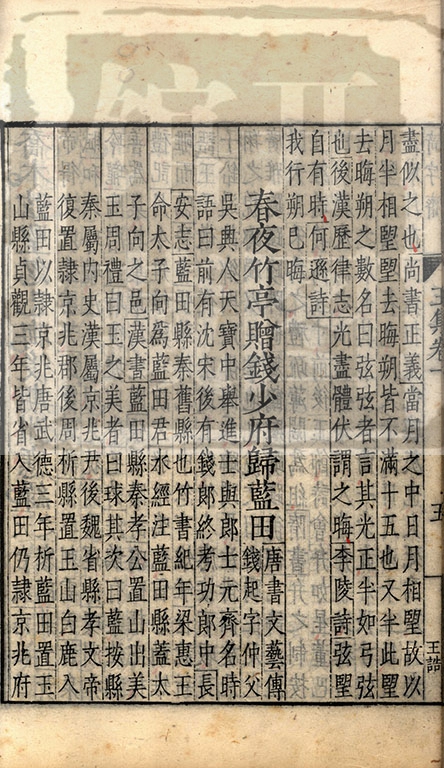 盡似之也尚書正義當月之中日月相望故以
月半相望望去晦朔皆不滿十五也又半此望
去晦朔之數名曰弦弦者言其光正半如弓弦
也後漢歷律志光盡體伏謂之晦李陵詩弦望
自有時何遜詩
我行朔已晦
春夜竹亭贈錢少府歸藍田唐書文藝傳
錢起字仲父
吳興人天寶中舉進士與郎士元齊名時
語曰前有沈宋後有錢郎終考功郎中長
安志藍田縣秦舊縣也竹書紀年梁惠王
命太子向為藍田君水經注藍田縣蓋太
子向之邑漢書藍田縣秦孝公置山出美
玉周禮曰玉之美者曰球其次曰藍按縣
秦屬內史漢屬京兆尹後魏省縣孝文帝
復置隸京兆郡後周析縣置玉山白鹿入
藍田以隸京兆唐武德三年析藍田置玉
山縣貞觀三年皆省入藍田仍隸京兆府
卷一
五
王誥